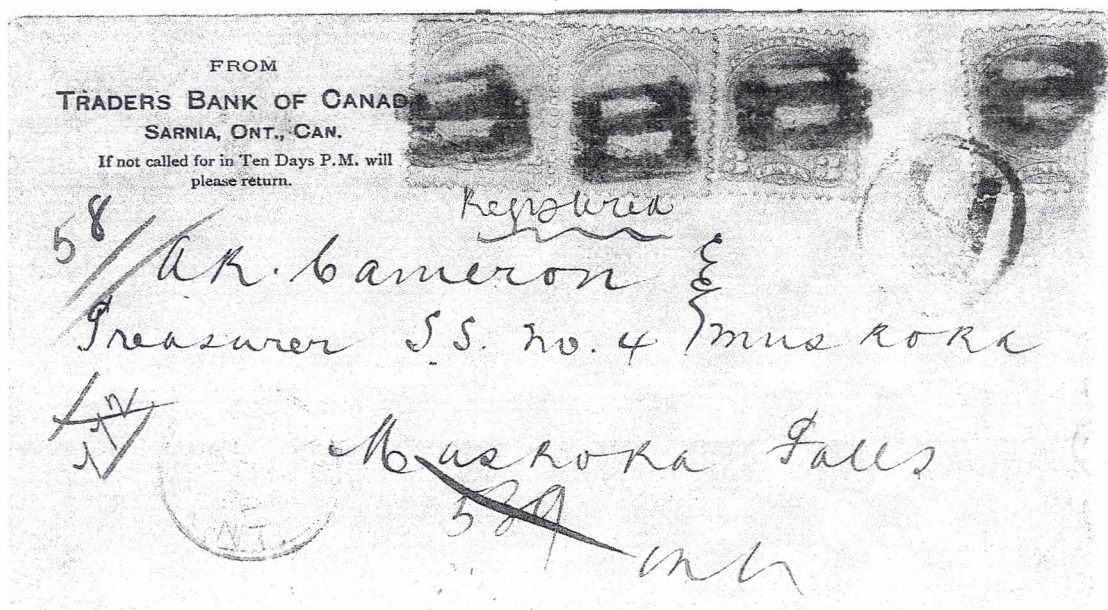 FROM
TRADERS BANK OF CANAD
SARNIA, ONT., CAN.
If not called for in Ten Days P.M. will
please return.
Registered
58
A R. Cameron
Treasurer S S. No. 4 Muskoka
Muskoka Falls
539
NT.